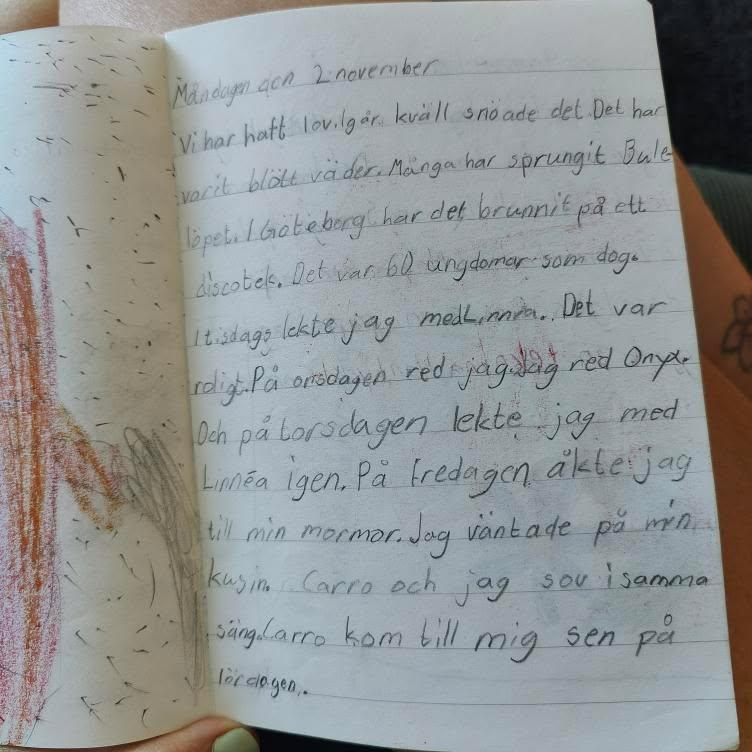 Måndagen den 2 november
Vi har haft lov. Igår kväll snöade det. Det har
varit blött väder. Många har sprungit Bule
löpet. I Göteborg har det brunnit på ett
discotek. Det var 60 ungdomar som dog.
I tisdags lekte jag med Linnéa. Det var
roligt. På onsdagen red jag. Jag red Onyx.
Och på torsdagen lekte jag med
Linnéa igen. På fredagen åkte jag
till min mormor. Jag väntade på min
kusin. Carro och jag sov i samma
säng. Carro kom till mig sen på
lördagen.